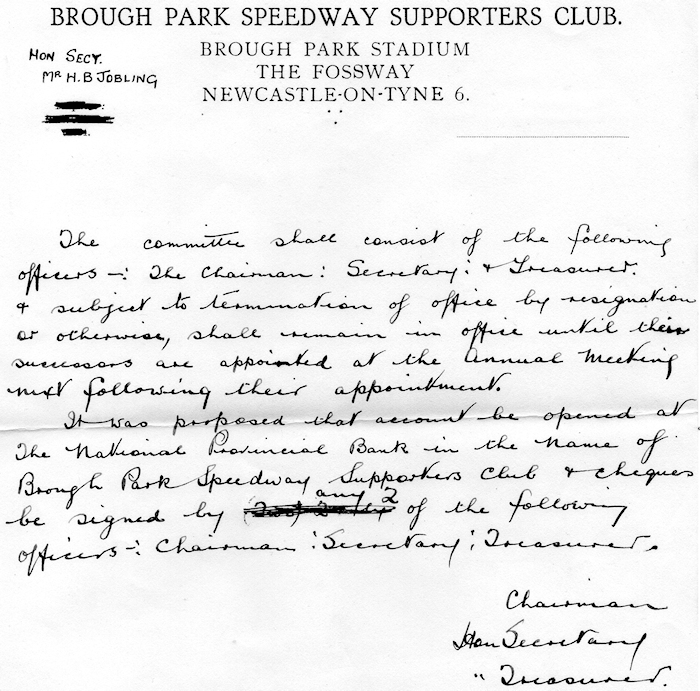 BROUGH PARK SPEEDWAY SUPPORTERS CLUB.
HON SECY.
MR H.B JOBLING
BROUGH PARK STADIUM
THE FOSSWAY
NEWCASTLE-ON-TYNE 6.
The committee shall consist of the following
officers -: The Chairman : Secretary : & Treasurer.
& subject to termination of office by resignation
or otherwise, shall remain in office until their
successors are appointed at the Annual Meeting
next following their appointment.
It was proposed that account be opened at
The National Provincial Bank in the Name of
Brough Park Speedway Supporters Club & cheques
be signed by any 2 of the following
officers -: Chairman : Secretary ; Treasurer.
Chairman
Hon Secretary
" Treasurer.